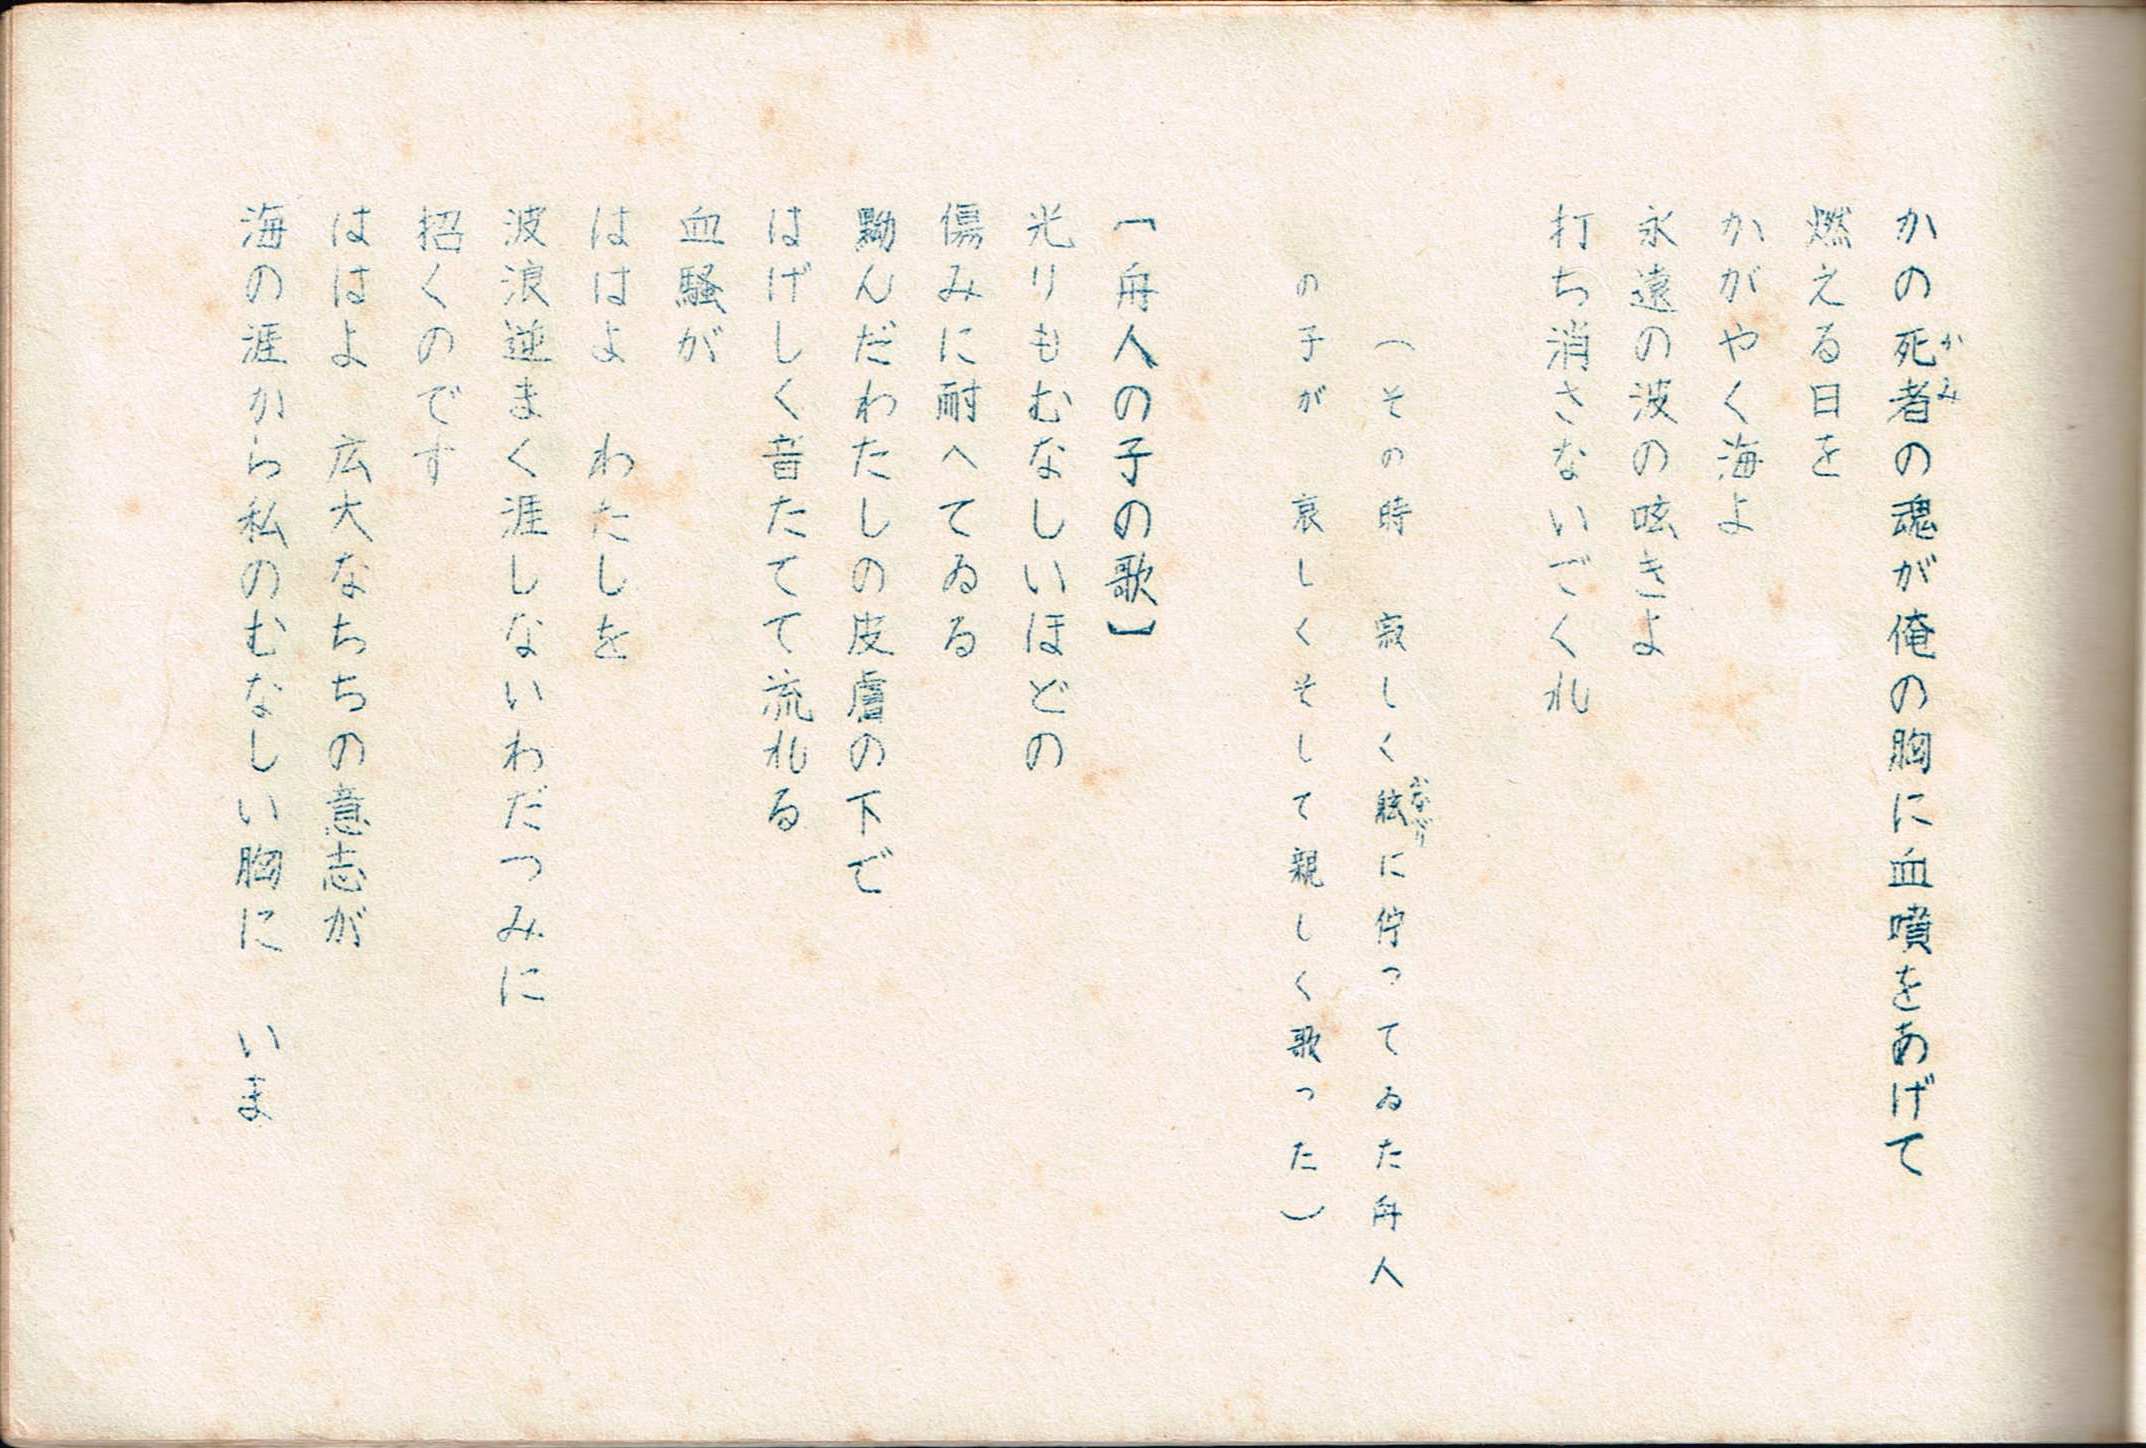 かの死者の魂が俺の胸に血噴をあげて
かみ
燃える日を
かがやく海よ
永遠の波の呟きよ
打ち消さないでくれ
(その時 寂しく舷に佇ってゐた舟人
ふなべり
の子が 哀しくそして親しく歌った)
「舟人の子の歌」
光りもむなしいほどの
傷みに耐へてゐる
黝んだわたしの皮膚の下で
はげしく音たてて流れる
血騒が
ははよ わたしを
波浪逆まく涯しないわだつみに
招くのです
ははよ 広大なちちの意志が
海の涯から私のむなしい胸に いま